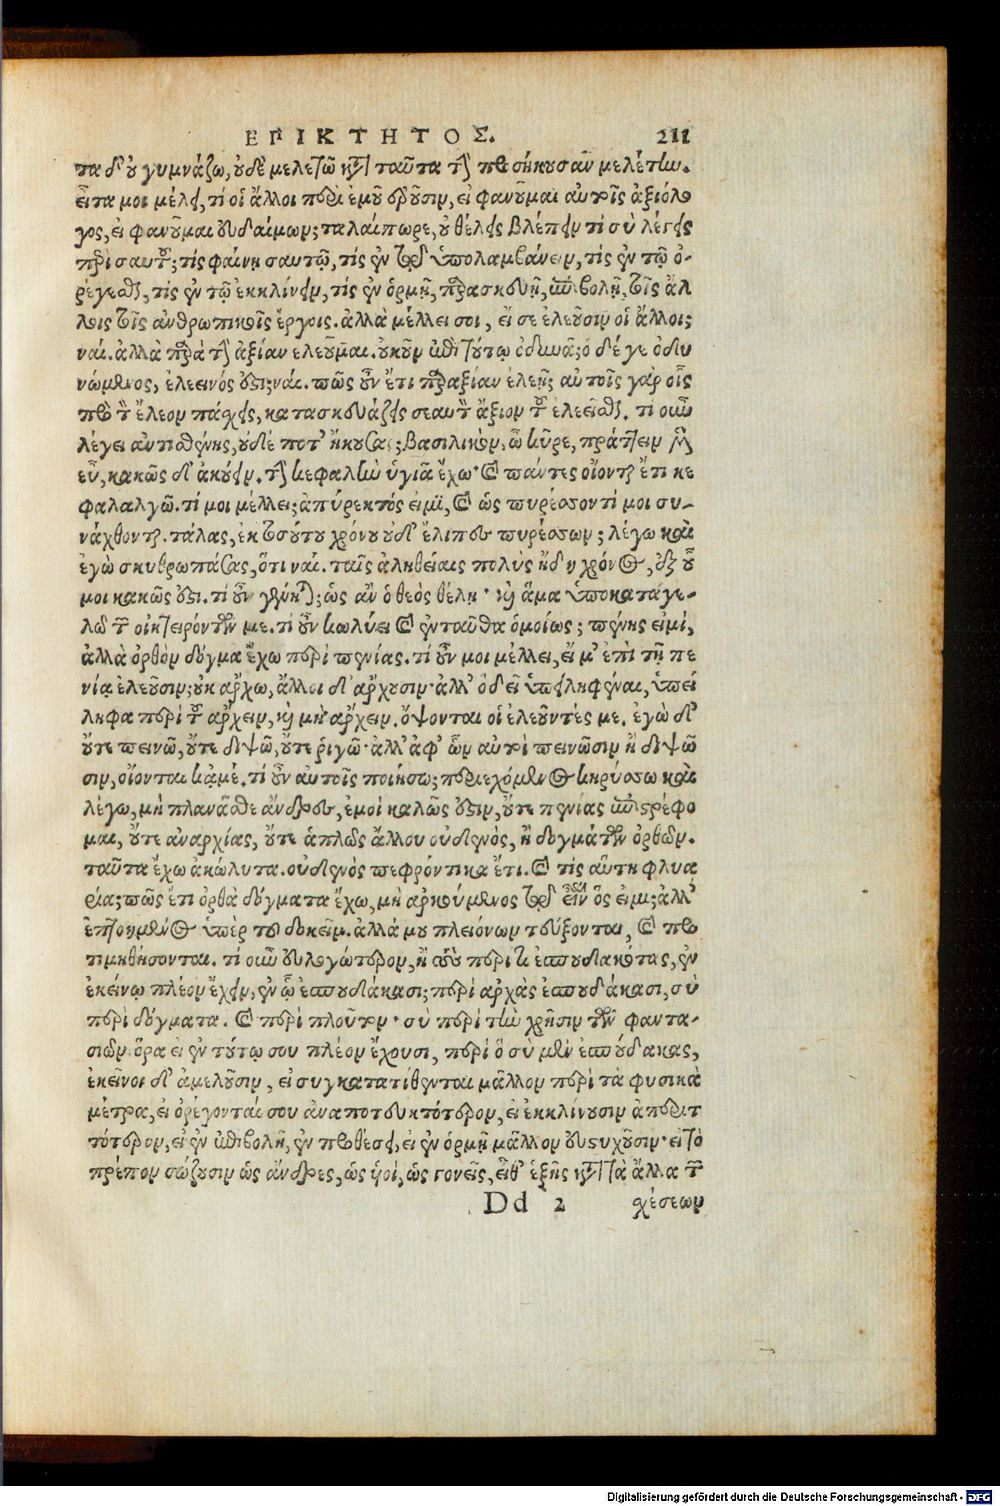 ΕΠΙΚΤΗΤΟΣ. 211
τα δ' οὐ γυμνάζω, οὐδὲ μελετῶ κατὰ ταῦτα τὴν προσήκουσαν μελέτην.
εἶτα μοι μέλει, τί οἱ ἄλλοι περὶ ἐμοῦ ἐροῦσιν, εἰ φανοῦμαι αὐτοῖς ἀξιόλο
γος, εἰ φανοῦμαι εὐδαίμων; ταλαίπωρε, οὐ θέλεις βλέπειν τί σὺ λέγεις
περὶ σαυτοῦ; τίς φαίνῃ σαυτῷ, τίς ἐν τῷ ὑπολαμβάνειν, τίς ἐν τῷ ὀ-
ρέγεσθαι, τίς ἐν τῷ ἐκκλίνειν, τίς ἐν ὁρμῇ, παρασκευῇ, ἐπιβολῇ, τοῖς ἄλ
λοις τοῖς ἀνθρωπικοῖς ἔργοις. ἀλλὰ μέλλει σοι, εἴ σε ἐλεοῦσιν οἱ ἄλλοι;
ναί. ἀλλὰ παρὰ τὴν ἀξίαν ἐλεοῦμαι. οὐκοῦν ἐπὶ τούτῳ ὀδυνᾷ; ὁ δέ γε ὀδυ
νώμενος, ἐλεεινός ἐστι; ναί. πῶς οὖν ἔτι παρ' ἀξίαν ἐλεῇ; αὐτοῖς γὰρ οἷς
περὶ τὸν ἔλεον πάσχεις, κατασκευάζεις σεαυτὸν ἄξιον τοῦ ἐλεεῖσθαι. τί οὖν
λέγει ἀντισθένης, οὐδέποτ' ἤκουσας; βασιλικὸν, ὦ κῦρε, πράττειν μὲν
εὖ, κακῶς δ' ἀκούειν. τὴν κεφαλὴν ὑγιᾶ ἔχω· καὶ πάντες οἴονται ἔτι κε
φαλαλγῶ. τί μοι μέλλει; ἀπύρεκτός εἰμι, καὶ ὡς πυρέσσοντί μοι συ-
νάχθονται. τάλας, ἐκ τοσούτου χρόνου οὐδ' ἔλιπες πυρέσσων; λέγω καὶ
ἐγὼ σκυθρωπάσας, ὅτι ναί. ταῖς ἀληθείαις πολὺς ἤδη χρόνος, ἐξ οὗ
μοι κακῶς ἐστι. τί οὖν γένηται; ὡς ἂν ὁ θεὸς θέλῃ· καὶ ἅμα ὑποκαταγε-
λῶ τῶν οἰκτειρόντων με. τί οὖν κωλύει καὶ ἐνταῦθα ὁμοίως; πένης εἰμί,
ἀλλὰ ὀρθὸν δόγμα ἔχω περὶ πενίας. τί οὖν μοι μέλλει, εἴ μ' ἐπὶ τῇ πε
νίᾳ ἐλεοῦσιν; οὐκ ἄρχω, ἄλλοι δ' ἄρχουσιν· ἀλλ' ὃ δεῖ ὑπειληφέναι, ὑπεί
ληφα περὶ τοῦ ἄρχειν, καὶ μὴ ἄρχειν. ὄψονται οἱ ἐλεοῦντές με. ἐγὼ δ'
οὔτε πεινῶ, οὔτε διψῶ, οὔτε ῥιγῶ· ἀλλ' ἀφ' ὧν αὐτοὶ πεινῶσιν ἢ διψῶ
σιν, οἴονται κἀμέ. τί οὖν αὐτοῖς ποιήσω; περιερχόμενος κηρύσσω καὶ
λέγω, μὴ πλανᾶσθε ἄνδρες, ἐμοὶ καλῶς ἐστιν, οὔτε πενίας ἐπιστρέφο
μαι, οὔτε ἀναρχίας, οὔτε ἁπλῶς ἄλλου οὐδενὸς, ἢ δογμάτων ὀρθῶν.
ταῦτα ἔχω ἀκώλυτα. οὐδενὸς πεφρόντικα ἔτι. καὶ τίς αὕτη φλυα
ρία; πῶς ἔτι ὀρθὰ δόγματα ἔχω, μὴ ἀρκούμενος τῷ εἶναι ὅς εἰμι; ἀλλ'
ἐπτοημένος ὑπὲρ τοῦ δοκεῖν. ἀλλά μου πλειόνων τεύξονται, καὶ προ
τιμηθήσονται. τί οὖν εὐλογώτερον, ἢ τοὺς περί τι ἐσπουδακότας, ἐν
ἐκείνῳ πλέον ἔχειν, ἐν ᾧ ἐσπουδάκασι; περὶ ἀρχὰς ἐσπουδάκασι, σὺ
περὶ δόγματα. καὶ περὶ πλοῦτον· σὺ περὶ τὴν χρῆσιν τῶν φαντα-
σιῶν. ὅρα εἰ ἐν τούτῳ σου πλέον ἔχουσι, περὶ ὃ σὺ μὲν ἐσπούδακας,
ἐκεῖνοι δ' ἀμελοῦσιν, εἰ συγκατατίθενται μᾶλλον περὶ τὰ φυσικὰ
μέτρα, εἰ ὀρέγονταί σου ἀναποτευκτότερον, εἰ ἐκκλίνουσιν ἀπεριπ
τότερον, εἰ ἐν ἐπιβολῇ, ἐν προθέσει, εἰ ἐν ὁρμῇ μᾶλλον εὐστοχοῦσιν· εἰ τὸ
πρέπον σώζουσιν ὡς ἄνδρες, ὡς υἱοὶ, ὡς γονεῖς, εἶθ' ἑξῆς κατὰ τὰ ἄλλα τῶν
Dd 2 σχέσεων
Digitalisierung gefördert durch die Deutsche Forschungsgemeinschaft - DFG